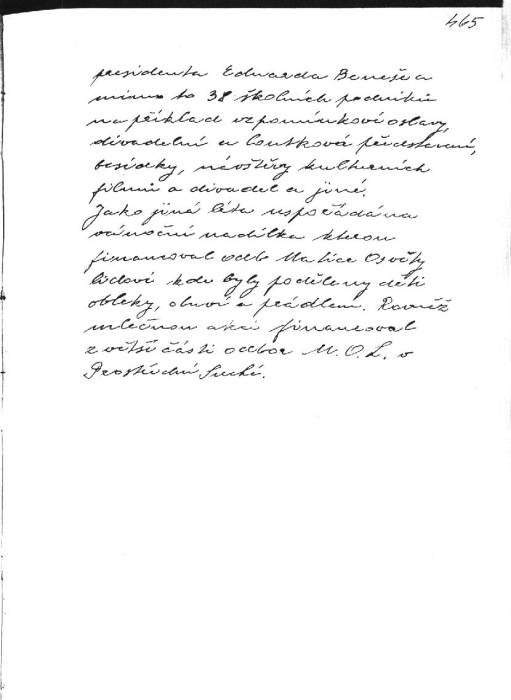 465
presidenta Edvarda Beneše a
mimo to 38 školních podniků
na příklad vzpomínkové oslavy,
divadelní a loutková představení,
besídky, návštěvy kulturních
filmů a divadel a jiné.
Jako jiná léta uspořádána
vánoční nadílka kterou
financoval odb. Matice Osvěty
lidové kde byly poděleny děti
obleky, obuví a prádlem. Rovněž
mléčnou akci financoval
z větší části odbor M. O. L. v
Prostřední Suché.